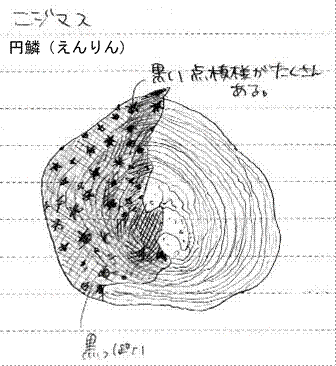 ニジマス
円鱗（えんりん）
黒い点模様がたくさん
ある。
黒っぽい